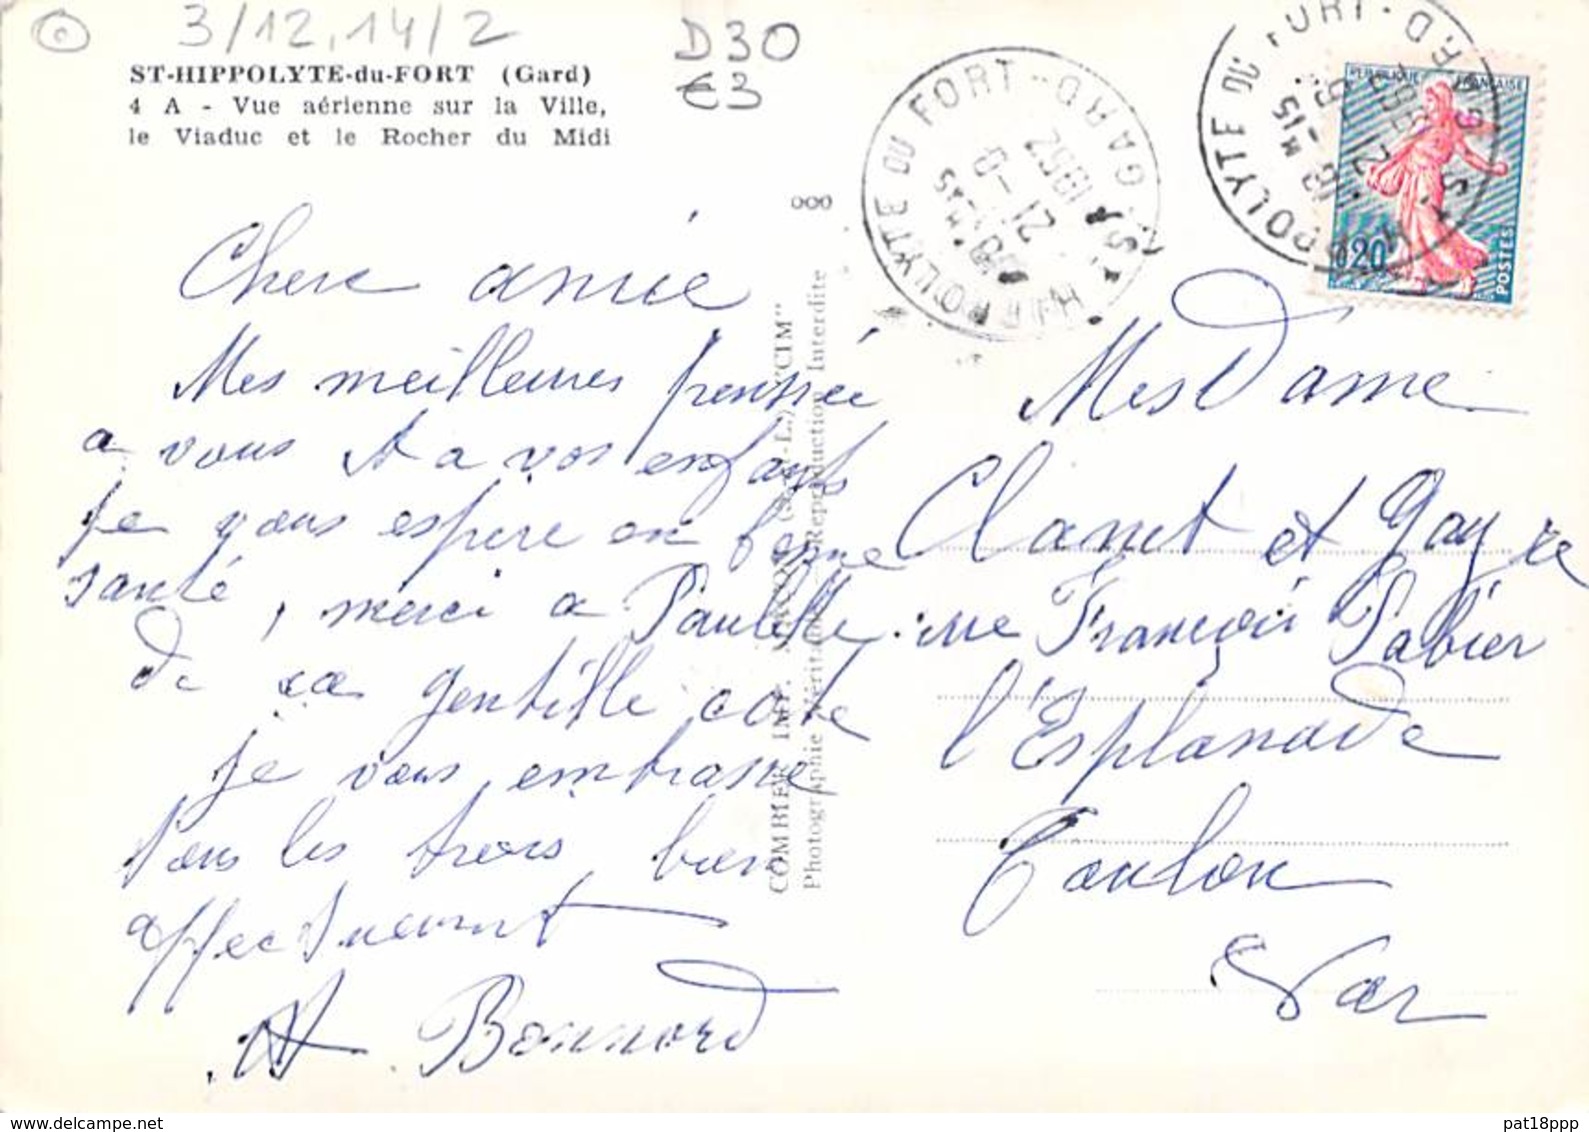 3/12,14/2
D30
€3
ST-HIPPOLYTE-du-FORT (Gard)
4 A - Vue aérienne sur la Ville,
le Viaduc et le Rocher du Midi
ST HIPPOLYTE DU FORT - GARD
21 - 9
1962
ST HIPPOLYTE DU FORT - GARD
REPUBLIQUE FRANÇAISE
0,20
POSTES
ooo
COMBIER IMP. MACON (S.-et-L.) "CIM"
Photographie Véritable - Reproduction Interdite
Chere amie
Mes meilleures pensée
a vous et a vos enfants
je vous espere en bonne
santé, merci a Paulette
de sa gentille carte
je vous embrasse
tous les trois bien
affectueusement
A Bonnard
MesDame
Clanet et Gay
rue François Fabier
l'Esplanade
Toulon
Var
pat18ppp